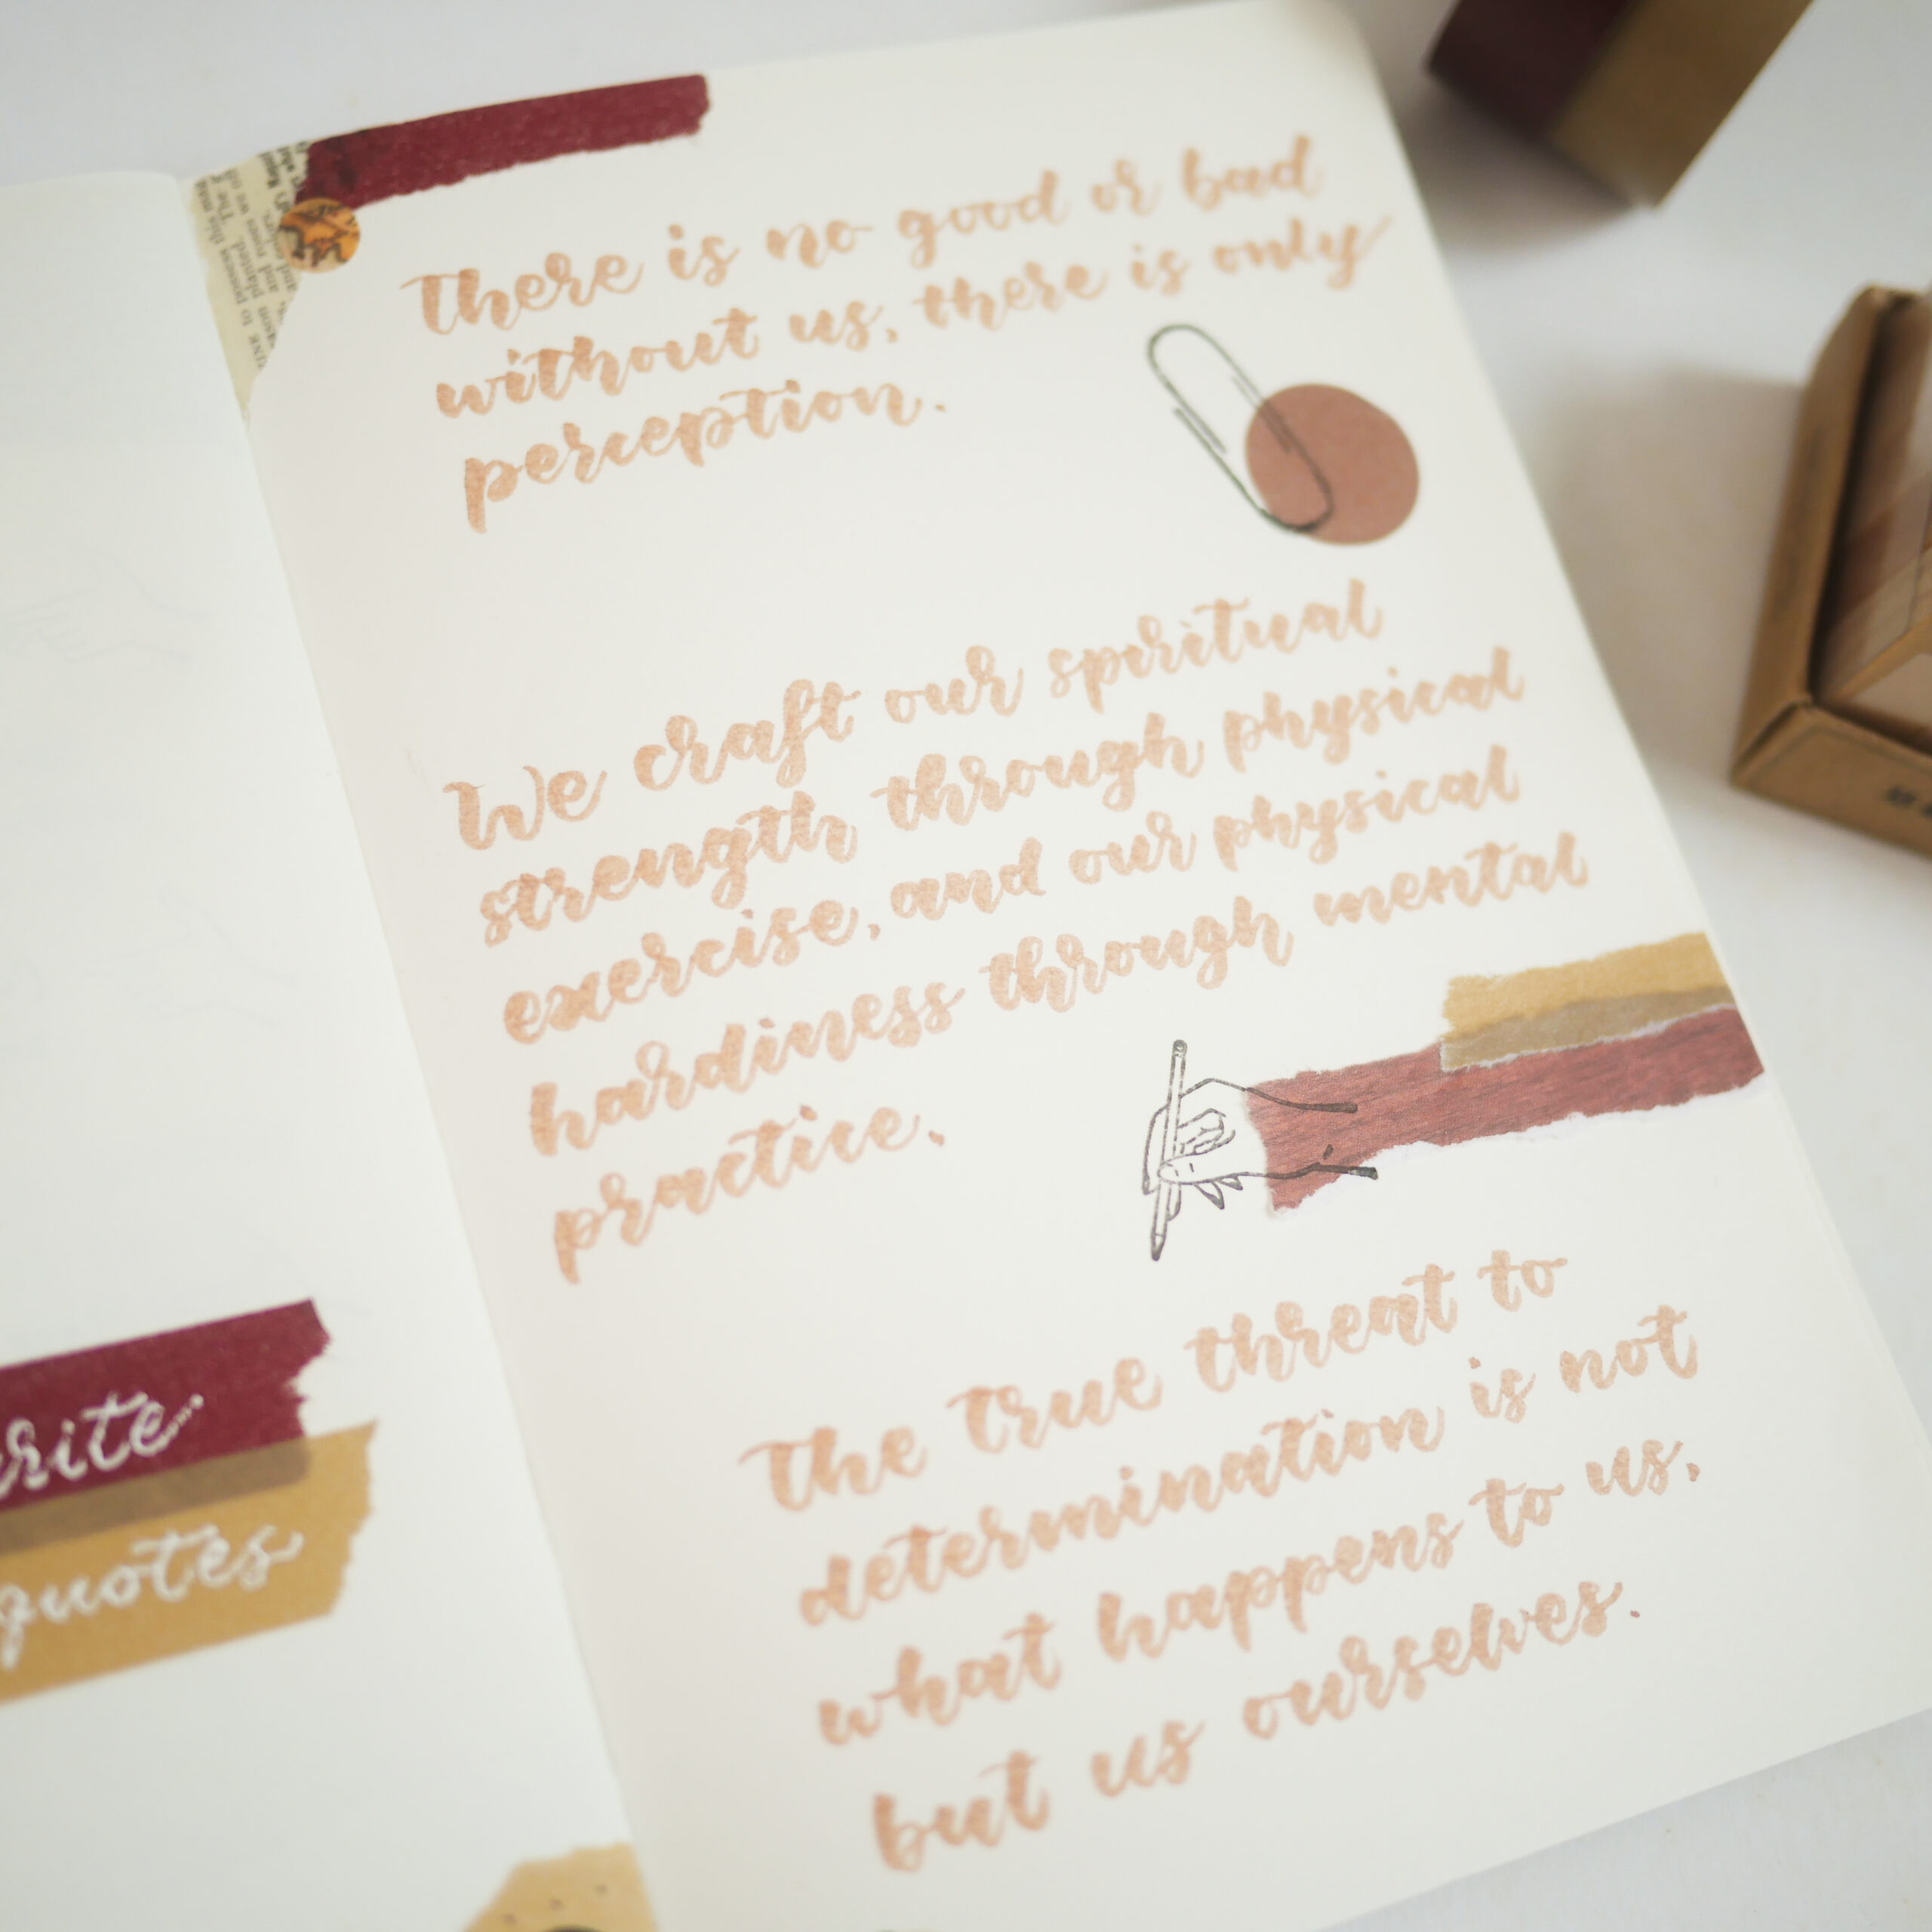 There is no good or bad
without us, there is only
perception.
We craft our spiritual
strength through physical
exercise, and our physical
hardiness through mental
practice.
The true threat to
determination is not
what happens to us,
but us ourselves.
quotes